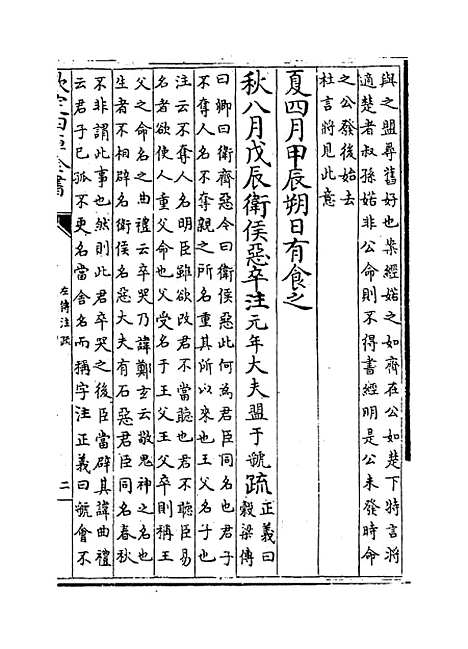 與之盟尋舊好也案經婼之如齊在公如楚下特言將
適楚者叔孫婼非公命則不得書經明是公未發時命
之公發後始去
杜言將見此意
夏四月甲辰朔日有食之
秋八月戊辰衛侯惡卒注元年大夫盟于虢疏正義曰
穀梁傳
曰卿曰衛齊惡今曰衛侯惡此何為君臣同名也君子
不奪人名不奪親之所名重其所以來也王父名子也
注云不奪人名明臣雖欲改君不當聽也君不聽臣易
名者欲使人重父命也父受名于王父王父卒則稱王
父之命名之曲禮云卒哭乃諱鄭玄云敬鬼神之名也
生者不相辟名衛侯名惡大夫有石惡君臣同名春秋
不非謂此事也然則此君卒哭之後臣當辟其諱曲禮
云君子已孤不更名當舍名而稱字注正義曰虢會不
欽定四庫全書
左傳注疏
二